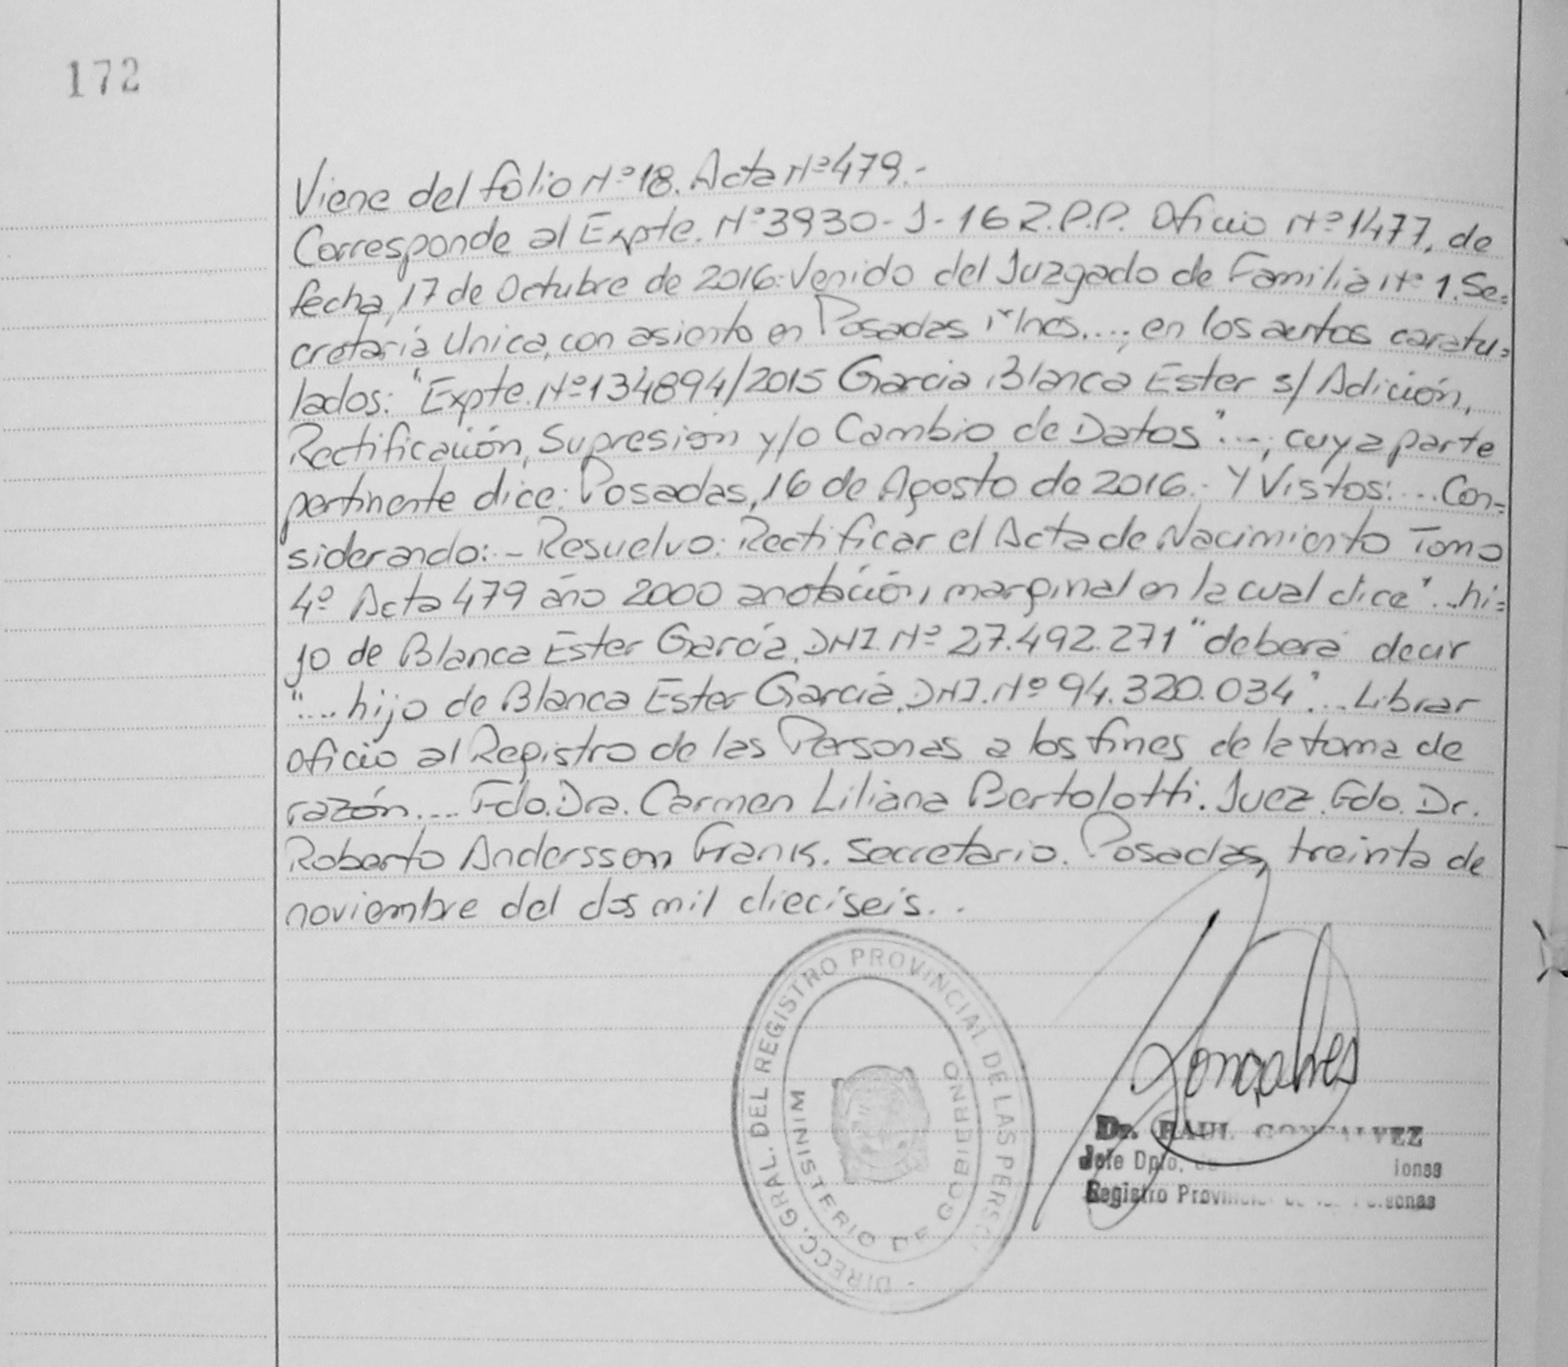 172
Viene del folio Nº 18. Acta Nº 479.-
Corresponde al Expte. Nº 3930-J-16 R.P.P. Oficio Nº 1477, de
fecha, 17 de Octubre de 2016. Venido del Juzgado de Familia Nº 1. Se=
cretaría Unica, con asiento en Posadas Mnes....; en los autos caratu=
lados: "Expte. Nº 134894/2015 Garcia Blanca Ester s/ Adición,
Rectificación, Supresión y/o Cambio de Datos"...; cuya parte
pertinente dice: Posadas, 16 de Agosto de 2016.- Y Vistos:... Con=
siderando:- Resuelvo: Rectificar el Acta de Nacimiento Tomo
4º Acta 479 año 2000 anotación, marginal en la cual dice "...hi=
jo de Blanca Ester García, DNI. Nº 27.492.271" deberá decir
"....hijo de Blanca Ester García, DNI. Nº 94.320.034"... Librar
oficio al Registro de las Personas a los fines de la toma de
razón.... Fdo. Dra. Carmen Liliana Bertolotti. Juez. Fdo. Dr.
Roberto Andersson Frank. Secretario. Posadas, treinta de
noviembre del dos mil dieciseis..
DIRECC. GRAL. DEL REGISTRO PROVINCIAL DE LAS PERS
MINISTERIO DE GOBIERNO
Gonçalves
Dr. RAUL GONCALVEZ
Jefe Dpto.
Registro Provincial de las Personas